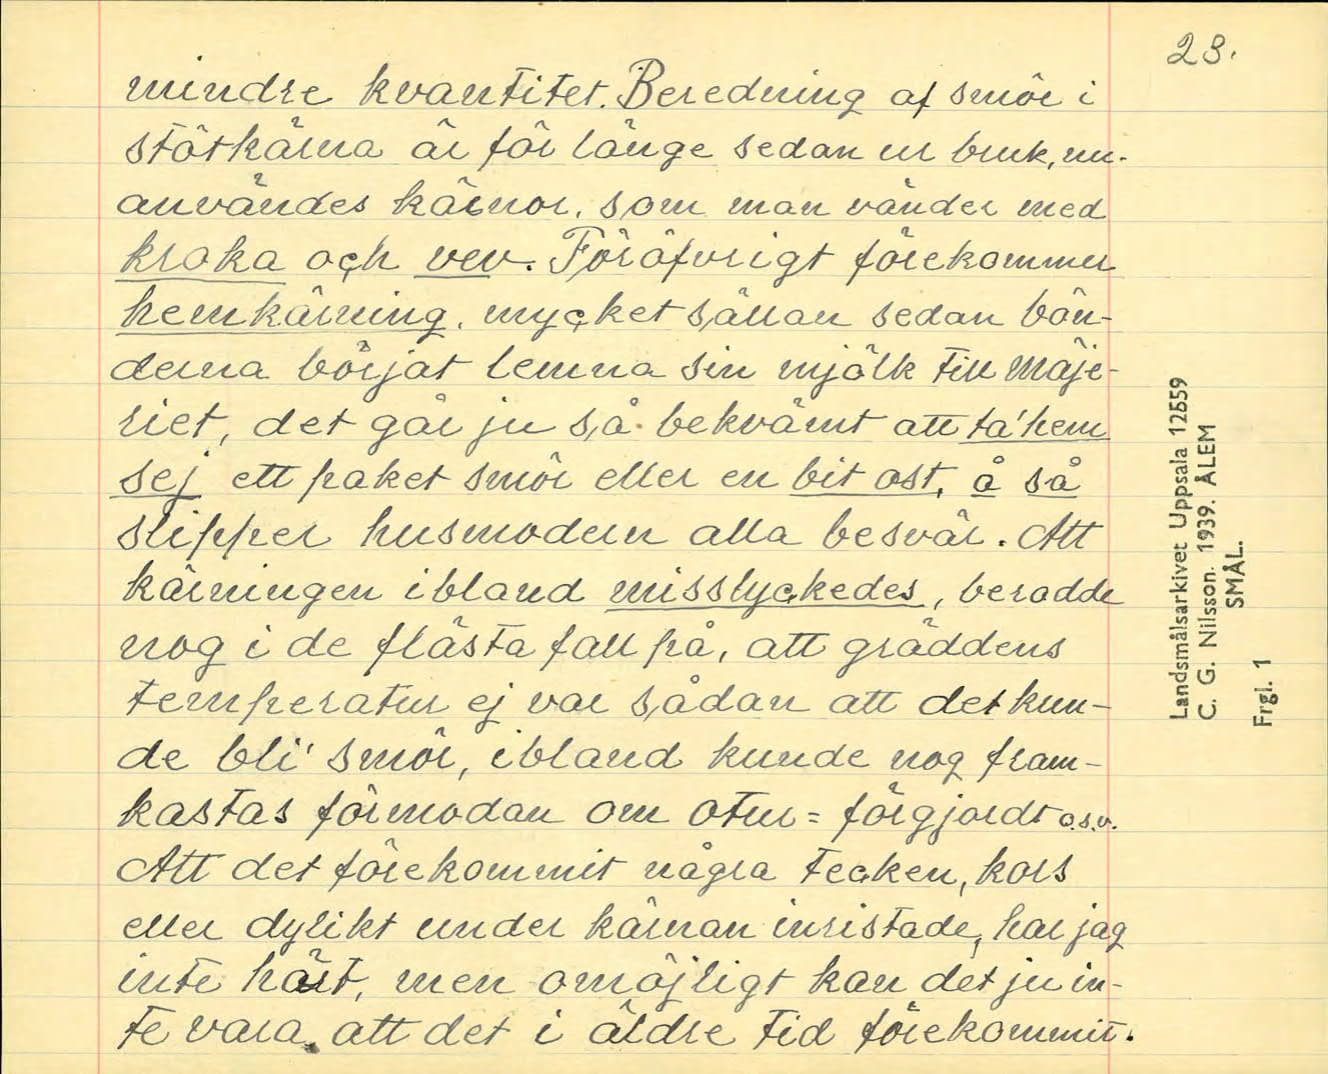 23.
mindre kvantitet. Beredning af smör i
stötkärna är för länge sedan ur bruk, nu.
användes kärnor, som man vänder med
kroka och vev. Föröfvrigt förekommer
hemkärning, mycket sällan sedan bön-
derna börjat lemna sin mjölk till Mäje-
riet, det går ju så bekvämt att ta' hem
sej ett paket smör eller en bit ost, å så
slipper husmodern alla besvär. Att
kärningen ibland misslyckedes, berodde
nog i de flästa fall på, att gräddens
temperatur ej var sådan att det kun-
de bli' smör, ibland kunde nog fram-
kastas förmodan om otur = förgjordt o.s.v.
Att det förekommit några tecken, kors
eller dylikt under kärnan inristade, har jag
inte hört, men omöjligt kan det ju in-
te vara att det i äldre tid förekommit.
Landsmålsarkivet Uppsala 12659
C. G. Nilsson. 1939. ÅLEM
SMÅL.
Frgl. 1